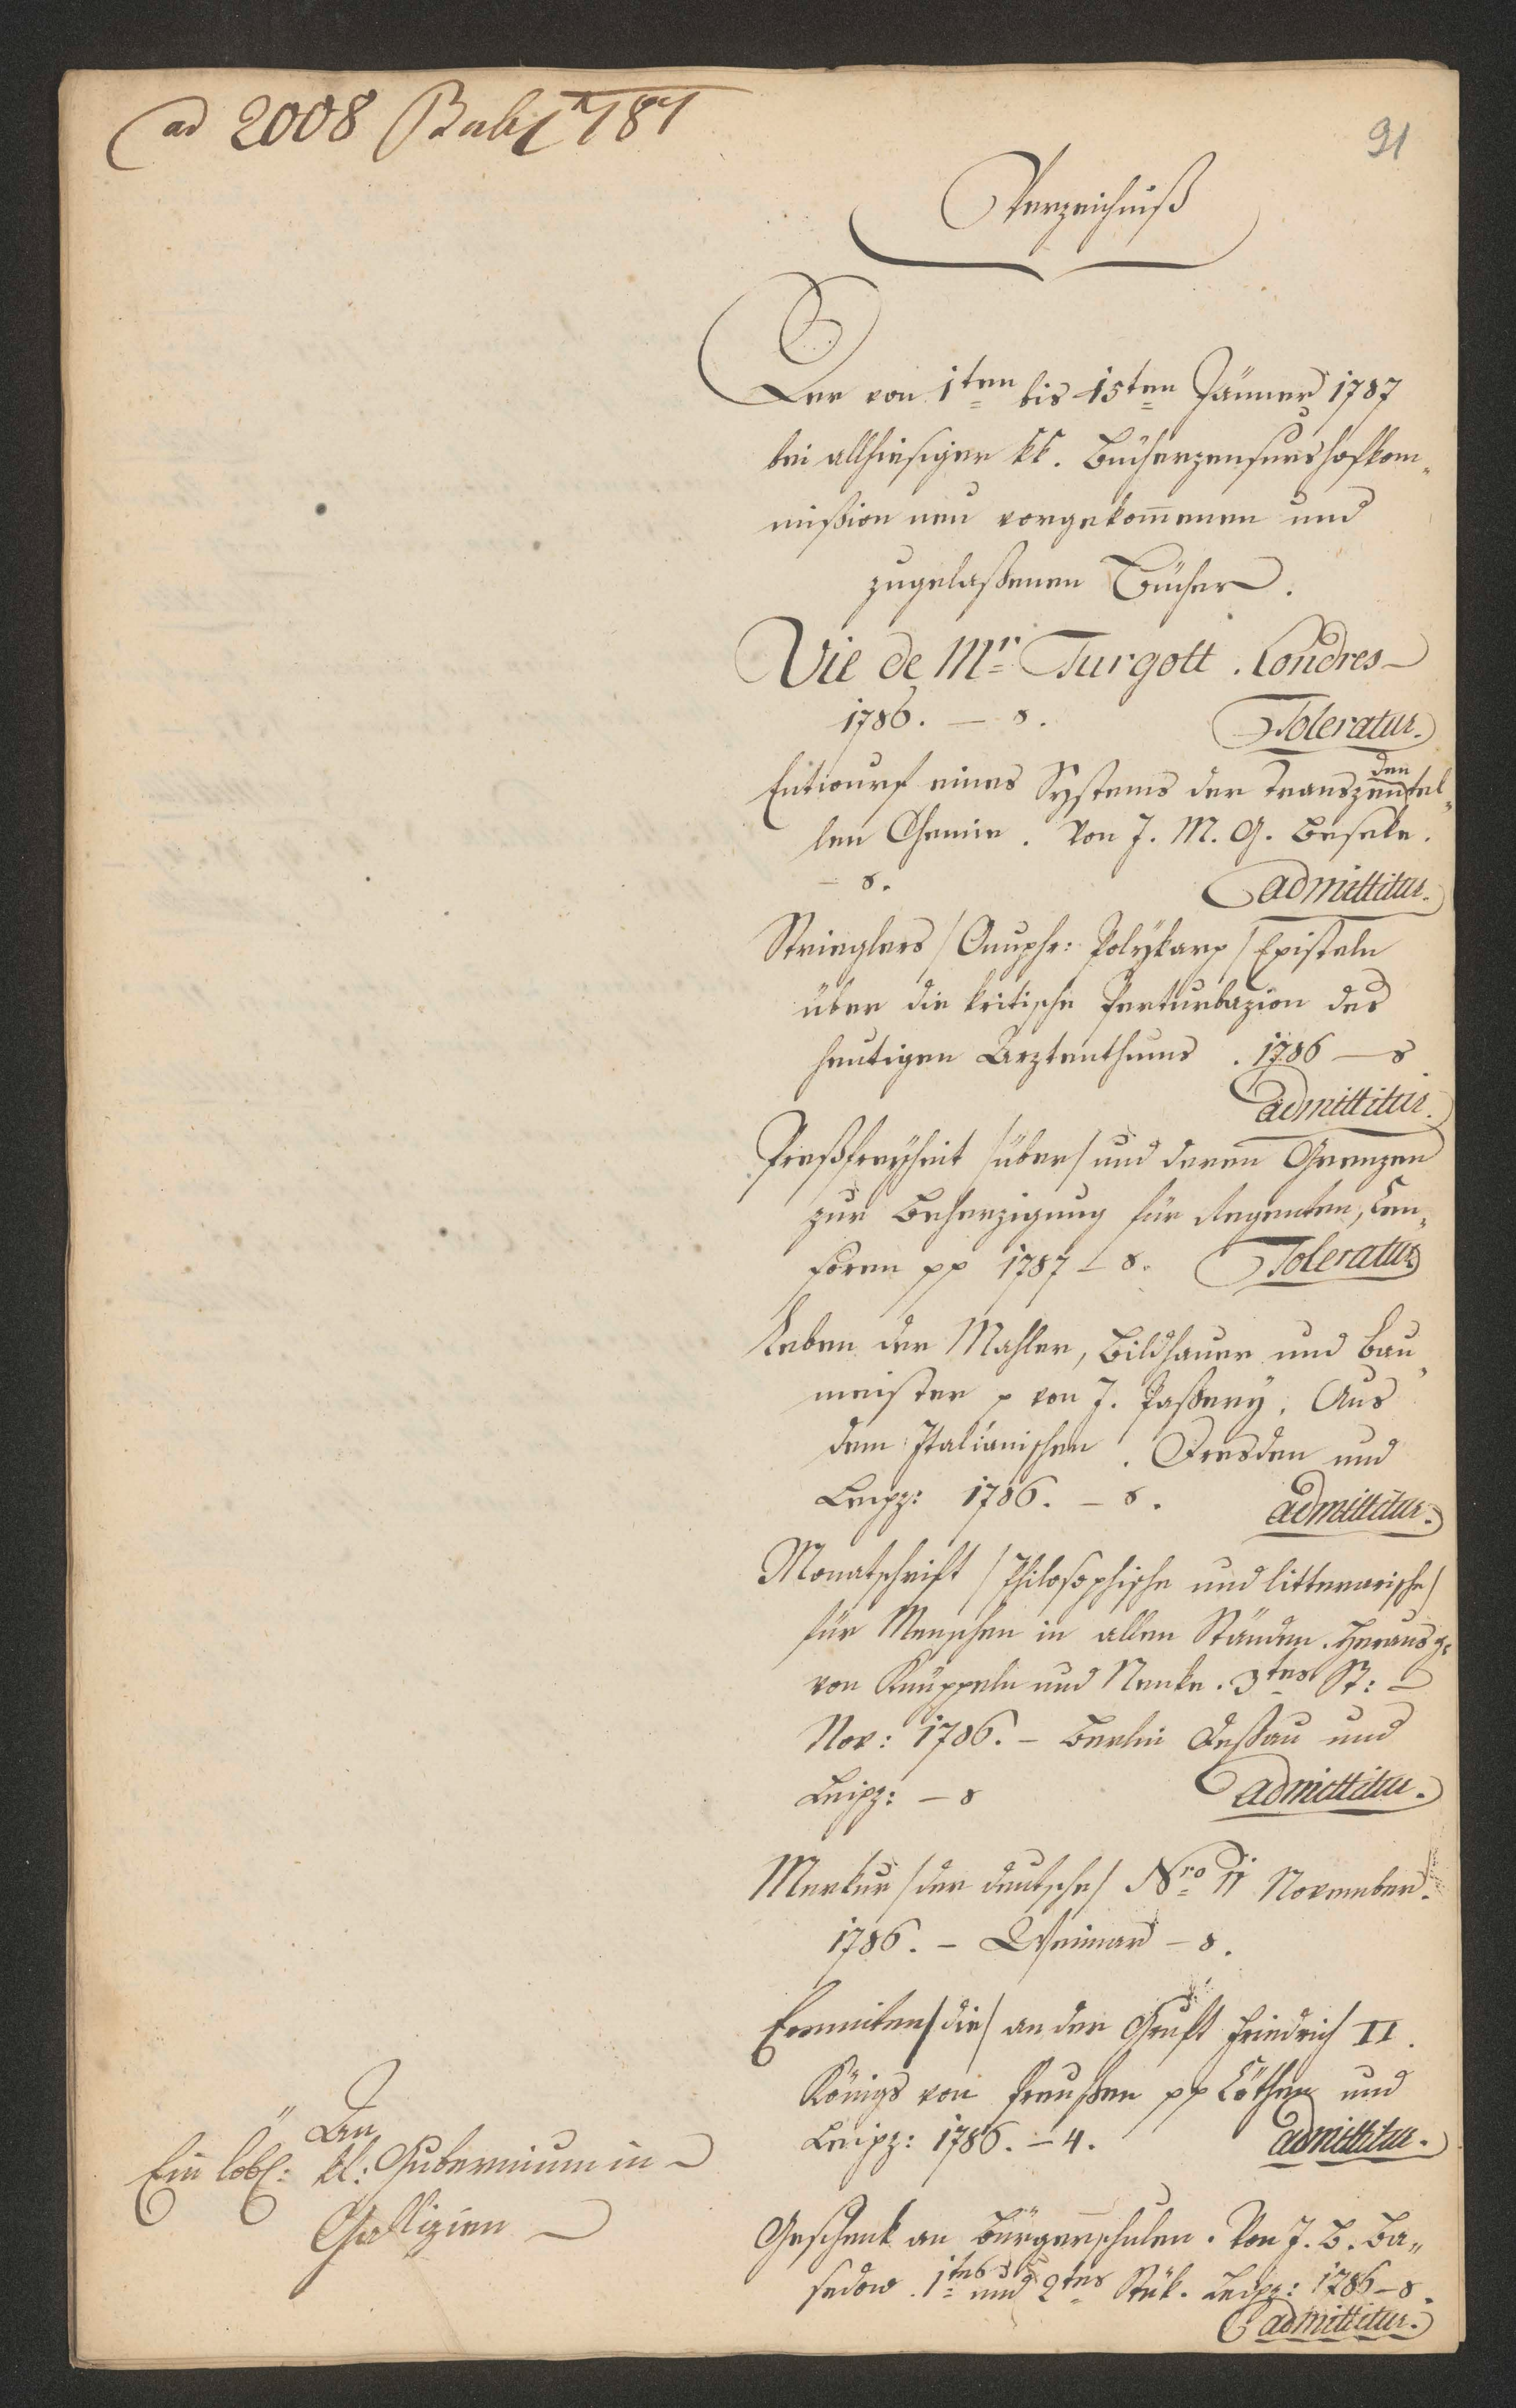 ad 2008 1787
91
Verzeichniß
Der von 1ten bis 15ten Jänner 1787
bei allhiesiger kk. Bücherzensurshofkom„
mißion neu vorgekom̄enen und
zugelaßenen Bücher.
Vie de Mr. Turgott. Londres
1786. — 8.
Toleratur.
Entwurf eines Systems der transzendentel„
len Chemie. Von J. M. G. Beseke.
— 8.
admittitur.
Strieglers /Onuphr: Polykarp/ Episteln
über die kritische Perturbazion des
heutigen Arztenthums. 1786 — 8
admittitur.
Preßfreyheit /über/ und deren Grenzen
zur Beherzigung für Regenten, Cen„
soren pp 1787 – 8. Toleratur
Leben der Mahler, Bildhauer und Bau„
meister p von J. Paßery. Aus
dem Italiänischen. Dresden und
Leipz: 1786. – 8.
admittitur.
Monatschrift /Philosophische und litterarische/
für Menschen in allen Ständen. Herausg:
von Knüppeln und Nenke. 3tes St: –
Nov: 1786. – Berlin Deßau und
Leipz: – 8
admittitur.
Merkur /der deutsche/ Nro 11 November.
1786. – Weimar – 8.
Eremiten /die/ an der Gruft Friedrich II.
Königs von Preußen pp Cöthen und
Leipz: 1786. – 4.
admittitur.
Geschenk an Bürgerschulen. Von J. B. Ba„
sedow. 1tes und 2tes Stük. Leipz: 1786 – 8.
admittitur.
An
Ein löbl: kk: Gubernium in
Gallizien